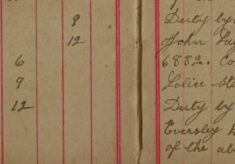 9 Duty by
12 John
6 6882. Co
9 Police St
12 Duty by
Eversley
of the ab